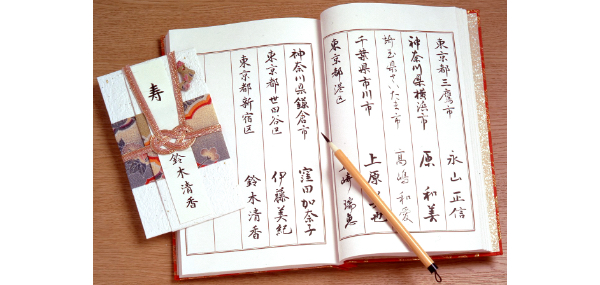 東京都三鷹市 永山正信
神奈川県横浜市 原和美
埼玉県さいたま市 高嶋和愛
千葉県市川市 上原 也
東京都港区 瑞恵
神奈川県鎌倉市 窪田加奈子
東京都世田谷区 伊藤美紀
東京都新宿区 鈴木清香
寿
鈴木清香